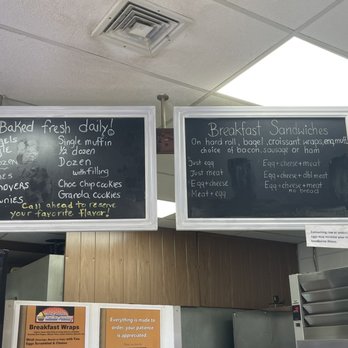 Baked fresh daily!
Single muffin
1/2 dozen
Dozen
with filling
Choc chip cookies
Granola cookies
Call ahead to reserve
your favorite flavor!
Breakfast Sandwiches
On hard roll, bagel, croissant wraps, eng. muff,
choice of bacon, sausage or ham
Just egg Egg + cheese + meat
Just meat Egg + cheese + dbl meat
Egg + cheese Egg + cheese + meat
Meat + egg no bread
Breakfast Wraps
Everything is
made to
order, your patience
is appreciated.